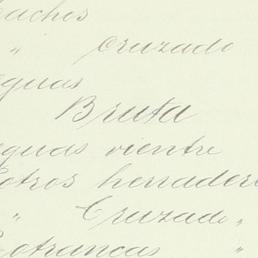 achos
" Cruzado
eguas
Bruta
eguas vientre
otros herradero
" Cruzado "
Potrancas "